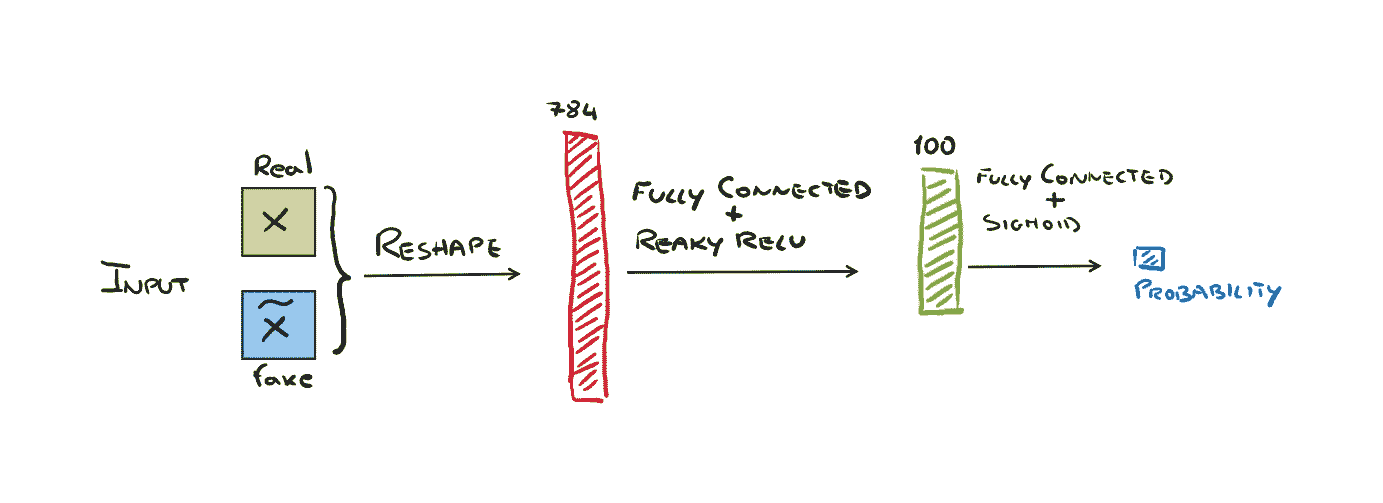 INPUT
Real
X
X̃
fake
RESHAPE
784
FULLY CONNECTED
+
REAKY RELU
100
FULLY CONNECTED
+
SIGMOID
PROBABILITY